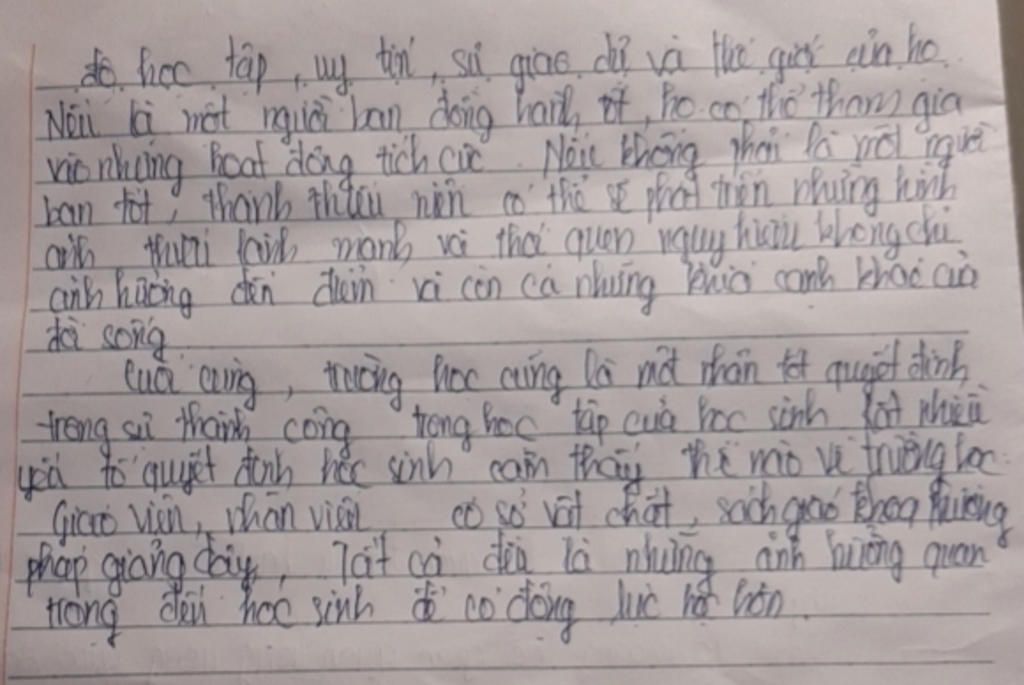 độ học tập, uy tín, sự giao dĩ và thế giới của họ.
Nếu là một người bạn đồng hành tốt, họ có thể tham gia
vào những hoạt động tích cực. Nếu không phải là một người
bạn tốt, thanh thiếu niên có thể sẽ phát triển những hình
ảnh thiếu lành mạnh và thói quen nguy hiểm không chỉ
ảnh hưởng đến điểm và còn cả những khía cạnh khác của
đời sống
Cuối cùng, trường học cũng là một nhân tố quyết định
trong sự thành công trong học tập của học sinh Rất nhiều
yếu tố quyết định học sinh cảm thấy thế nào về trường học.
Giáo viên, nhân viên, cơ sở vật chất, sách giáo khoa phương
pháp giảng dạy, Tất cả đều là những ảnh hưởng quan
trọng đến học sinh để có động lực học hơn.